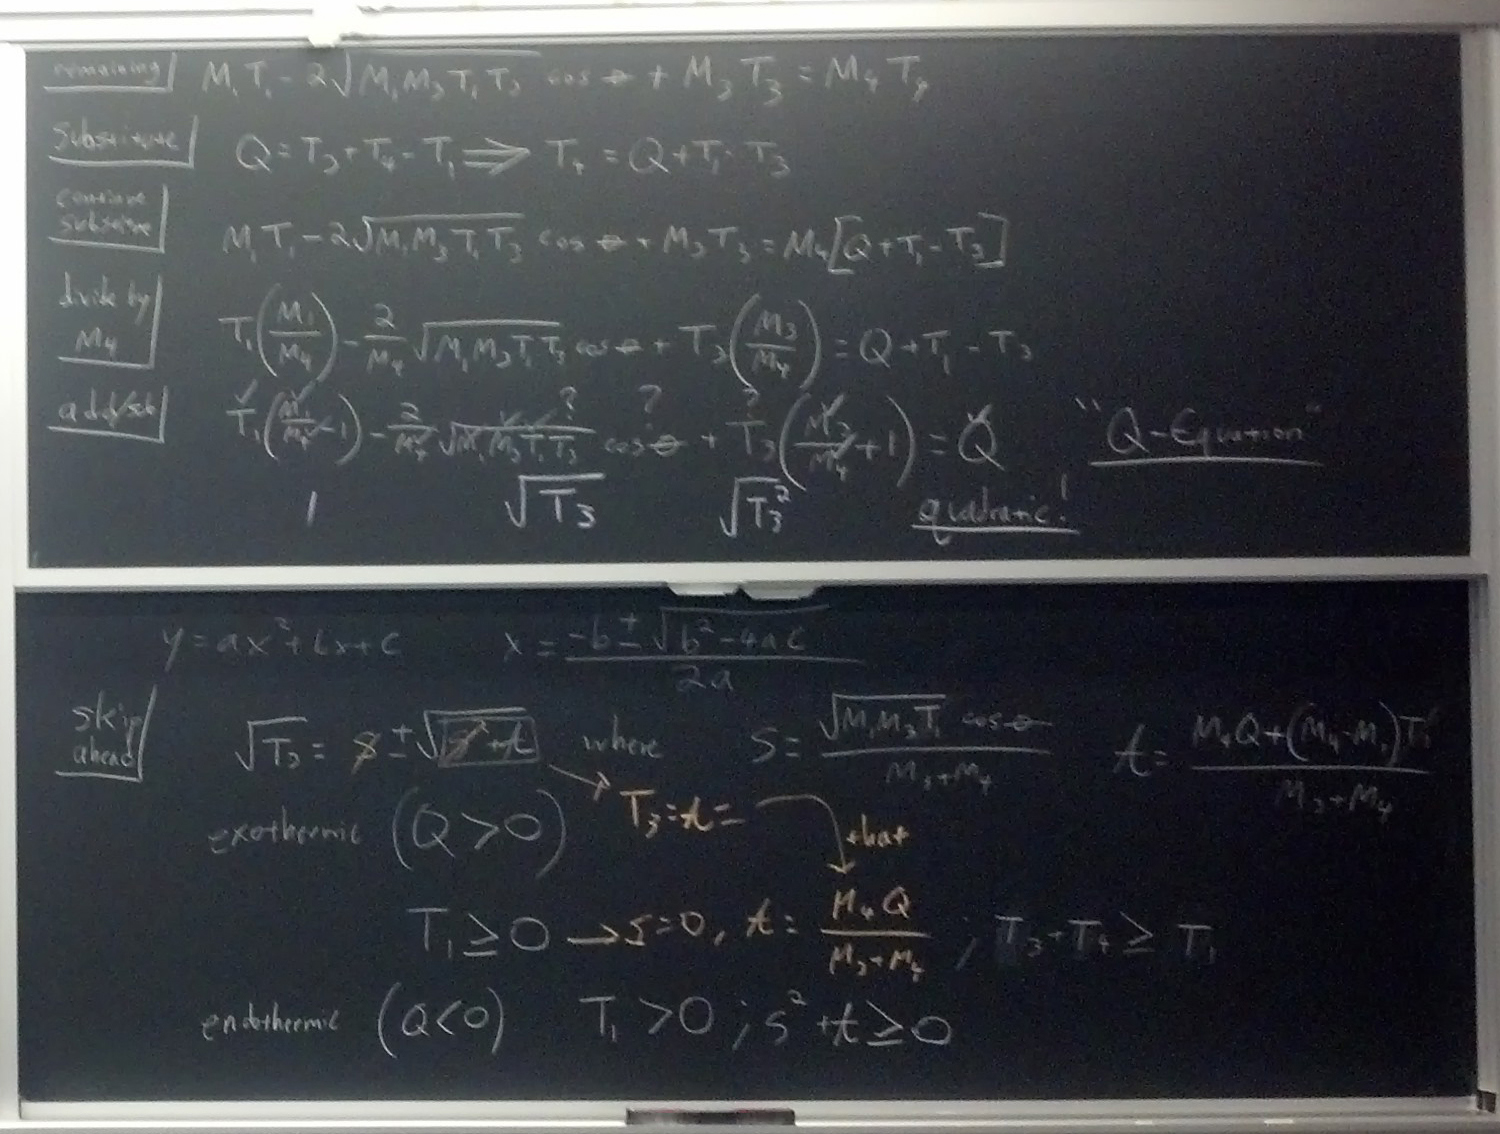 remaining M₁T₁ - 2√(M₁M₃T₁T₃) cos θ + M₃T₃ = M₄T₄
Substitute Q = T₃ + T₄ - T₁ ⟹ T₄ = Q + T₁ - T₃
continue substitute M₁T₁ - 2√(M₁M₃T₁T₃) cos θ + M₃T₃ = M₄[Q + T₁ - T₃]
divide by M₄ T₁(M₁/M₄) - 2/M₄ √(M₁M₃T₁T₃) cos θ + T₃(M₃/M₄) = Q + T₁ - T₃
✓ ✓ ✓ ✓ ? ? ? ✓ ✓
add/sub T₁(M₁/M₄ - 1) - 2/M₄ √(M₁M₃T₁T₃) cos θ + T₃(M₃/M₄ + 1) = Q "Q-Equation"
1 √T₃ √T₃² quadratic!
y = ax² + bx + c x = (-b ± √(b² - 4ac))/2a
skip ahead √T₃ = s ± √(s² + t) where s = √(M₁M₃T₁) cos θ/(M₃ + M₄) t = (M₄Q + (M₄ - M₁)T₁)/(M₃ + M₄)
→ T₃ = t = that
exothermic (Q > 0)
T₁ ≥ 0 → s = 0, t = M₄Q/(M₃ + M₄) ; T₃ + T₄ ≥ T₁
endothermic (Q < 0) T₁ > 0 ; s² + t ≥ 0